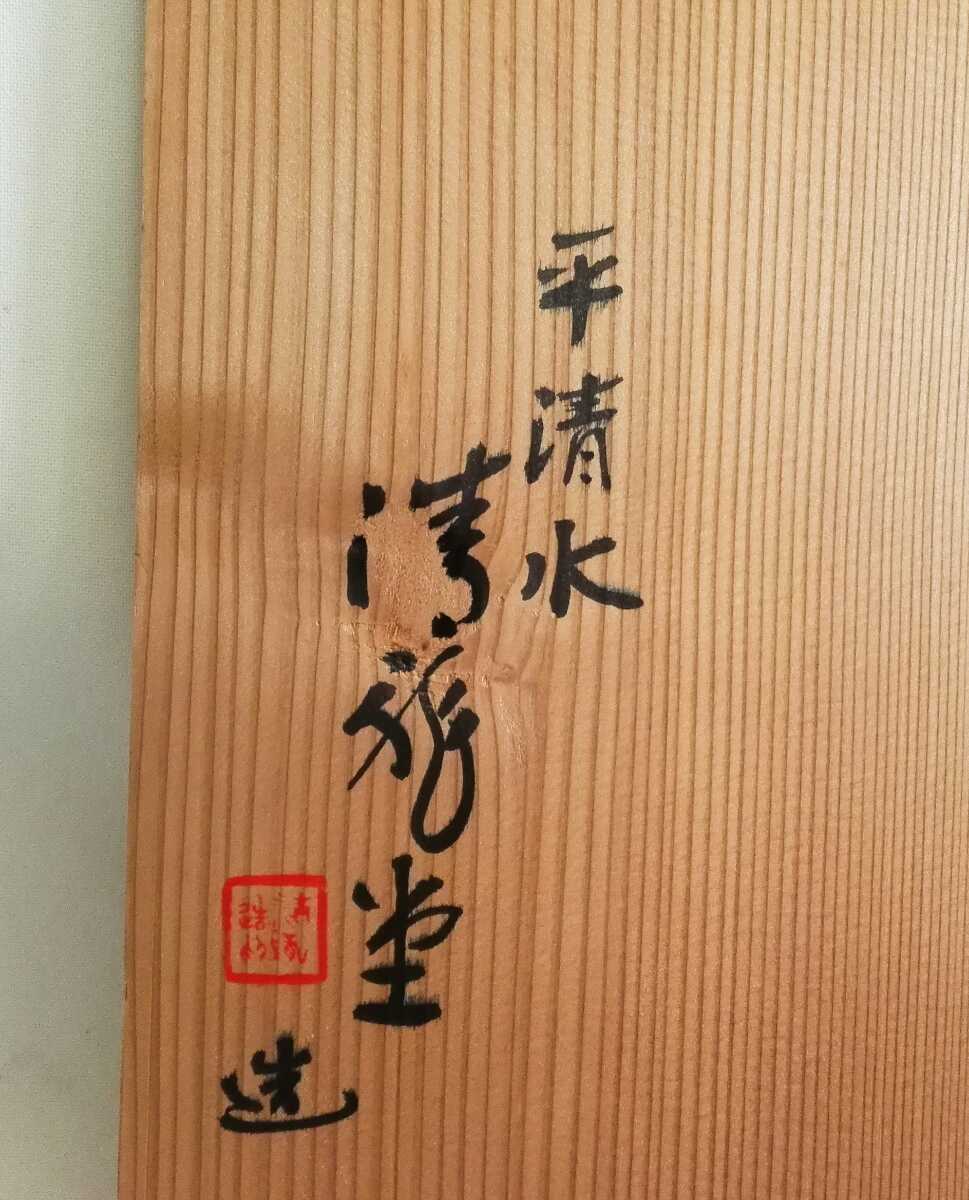 平清水
清龍堂
造